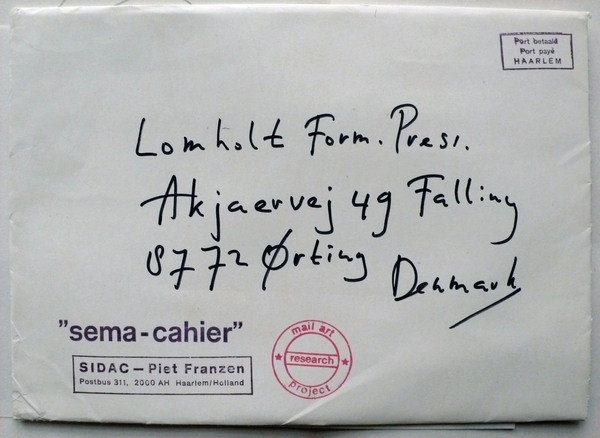 Port betaald
Port payé
HAARLEM
Lomholt Form. Press.
Akjaervej 49 Falling
8772 Ørting
Denmark
"sema-cahier"
SIDAC — Piet Franzen
Postbus 311, 2000 AH Haarlem/Holland
mail art
research
project